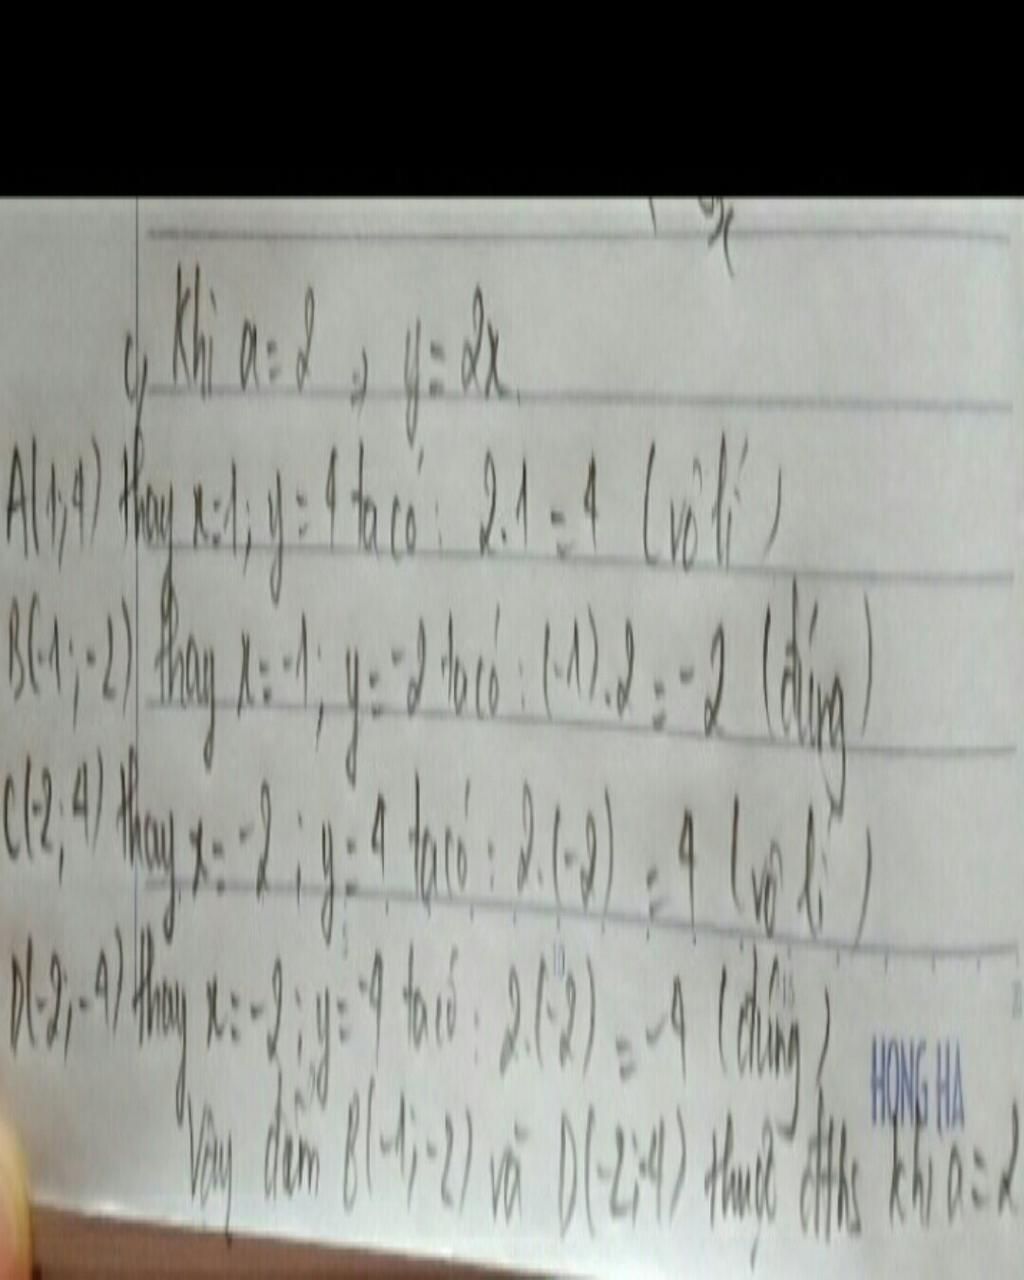 c, Khi a = 2 => y = 2x
A(1;4) thay x=1; y = 4 ta có : 2.1 = 4 (vô lí)
B(-1;-2) thay x = -1; y = -2 ta có : (-1).2 = -2 (đúng)
C(-2;4) thay x = -2 ; y = 4 ta có : 2.(-2) = 4 (vô lí)
D(-2;-4) thay x = -2 ; y = -4 ta có : 2.(-2) = -4 (đúng)
HONG HA
Vậy điểm B(-1;-2) và D(-2;-4) thuộc đths khi a = 2